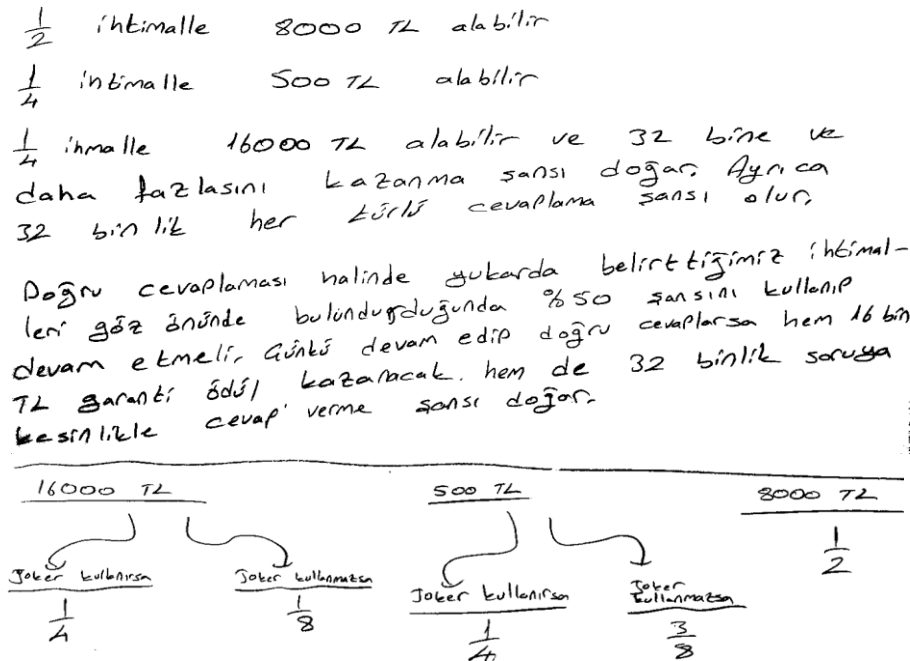 1/2 ihtimalle 8000 TL alabilir
1/4 ihtimalle 500 TL alabilir
1/4 ihmalle 16000 TL alabilir ve 32 bine ve
daha fazlasını kazanma şansı doğar. Ayrıca
32 bin lik her türlü cevaplama şansı olur.
Doğru cevaplaması halinde yukarda belirttiğimiz ihtimal-
leri göz önünde bulundurduğunda %50 şansını kullanıp
devam etmeli. Çünkü devam edip doğru cevaplarsa hem 16 bin
TL garanti ödül kazanacak. hem de 32 binlik soruya
kesinlikle cevap verme şansı doğar.
16000 TL 500 TL 8000 TL
Joker kullanırsa Joker kullanmazsa Joker kullanırsa Joker kullanmazsa 1/2
1/4 1/8 1/4 3/8